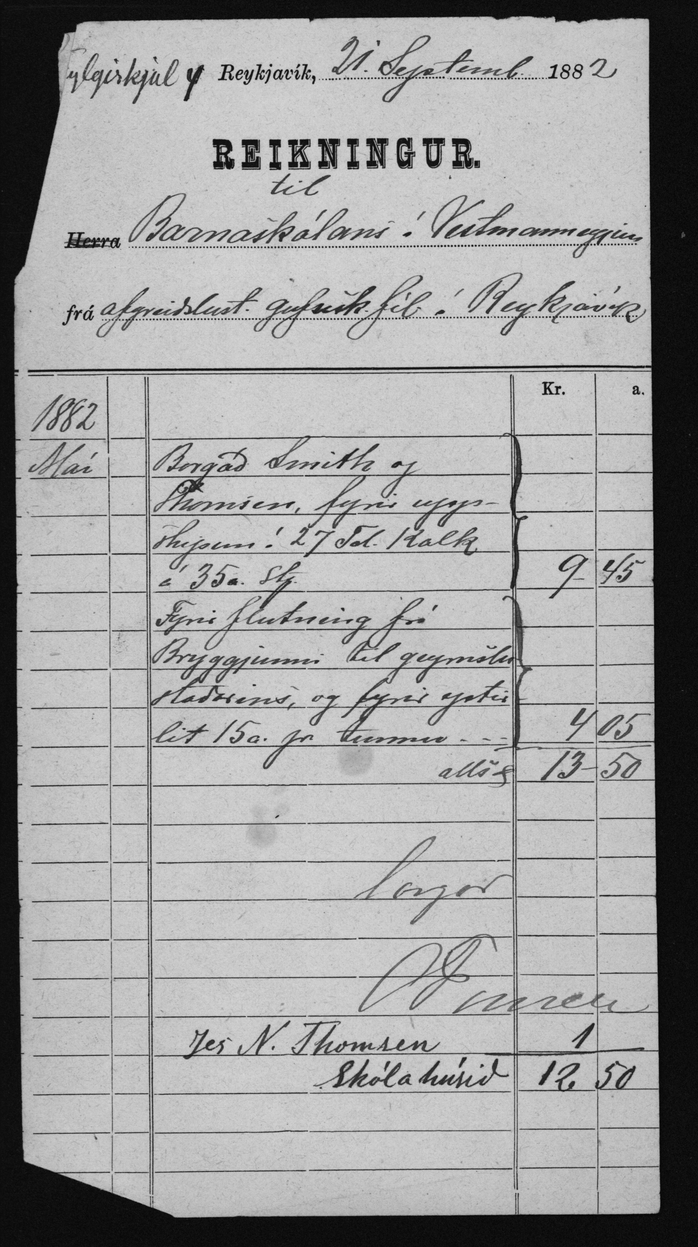 Fylgiskjal 4 Reykjavík, 21. Septemb. 1882
REIKNINGUR.
til
Herra Barnaskólans í Vestmanneyjum
frá afgreidslust. gufusk. fél. í Reykjavík
Kr. a.
1882
Mai Borgad Smith og
Thomsen, fyrir upp-
skipun í 27 Td. Kalk
á 35a. Stj. 9 45
Fyrir flutning frá
Bryggjunni til geymslu
stadarins, og fyrir eptir-
lit 15a. pr. tunnu - - - 4 05
alls 13 50
borgad
Jes N. Thomsen 1
Skólahúsid 12 50